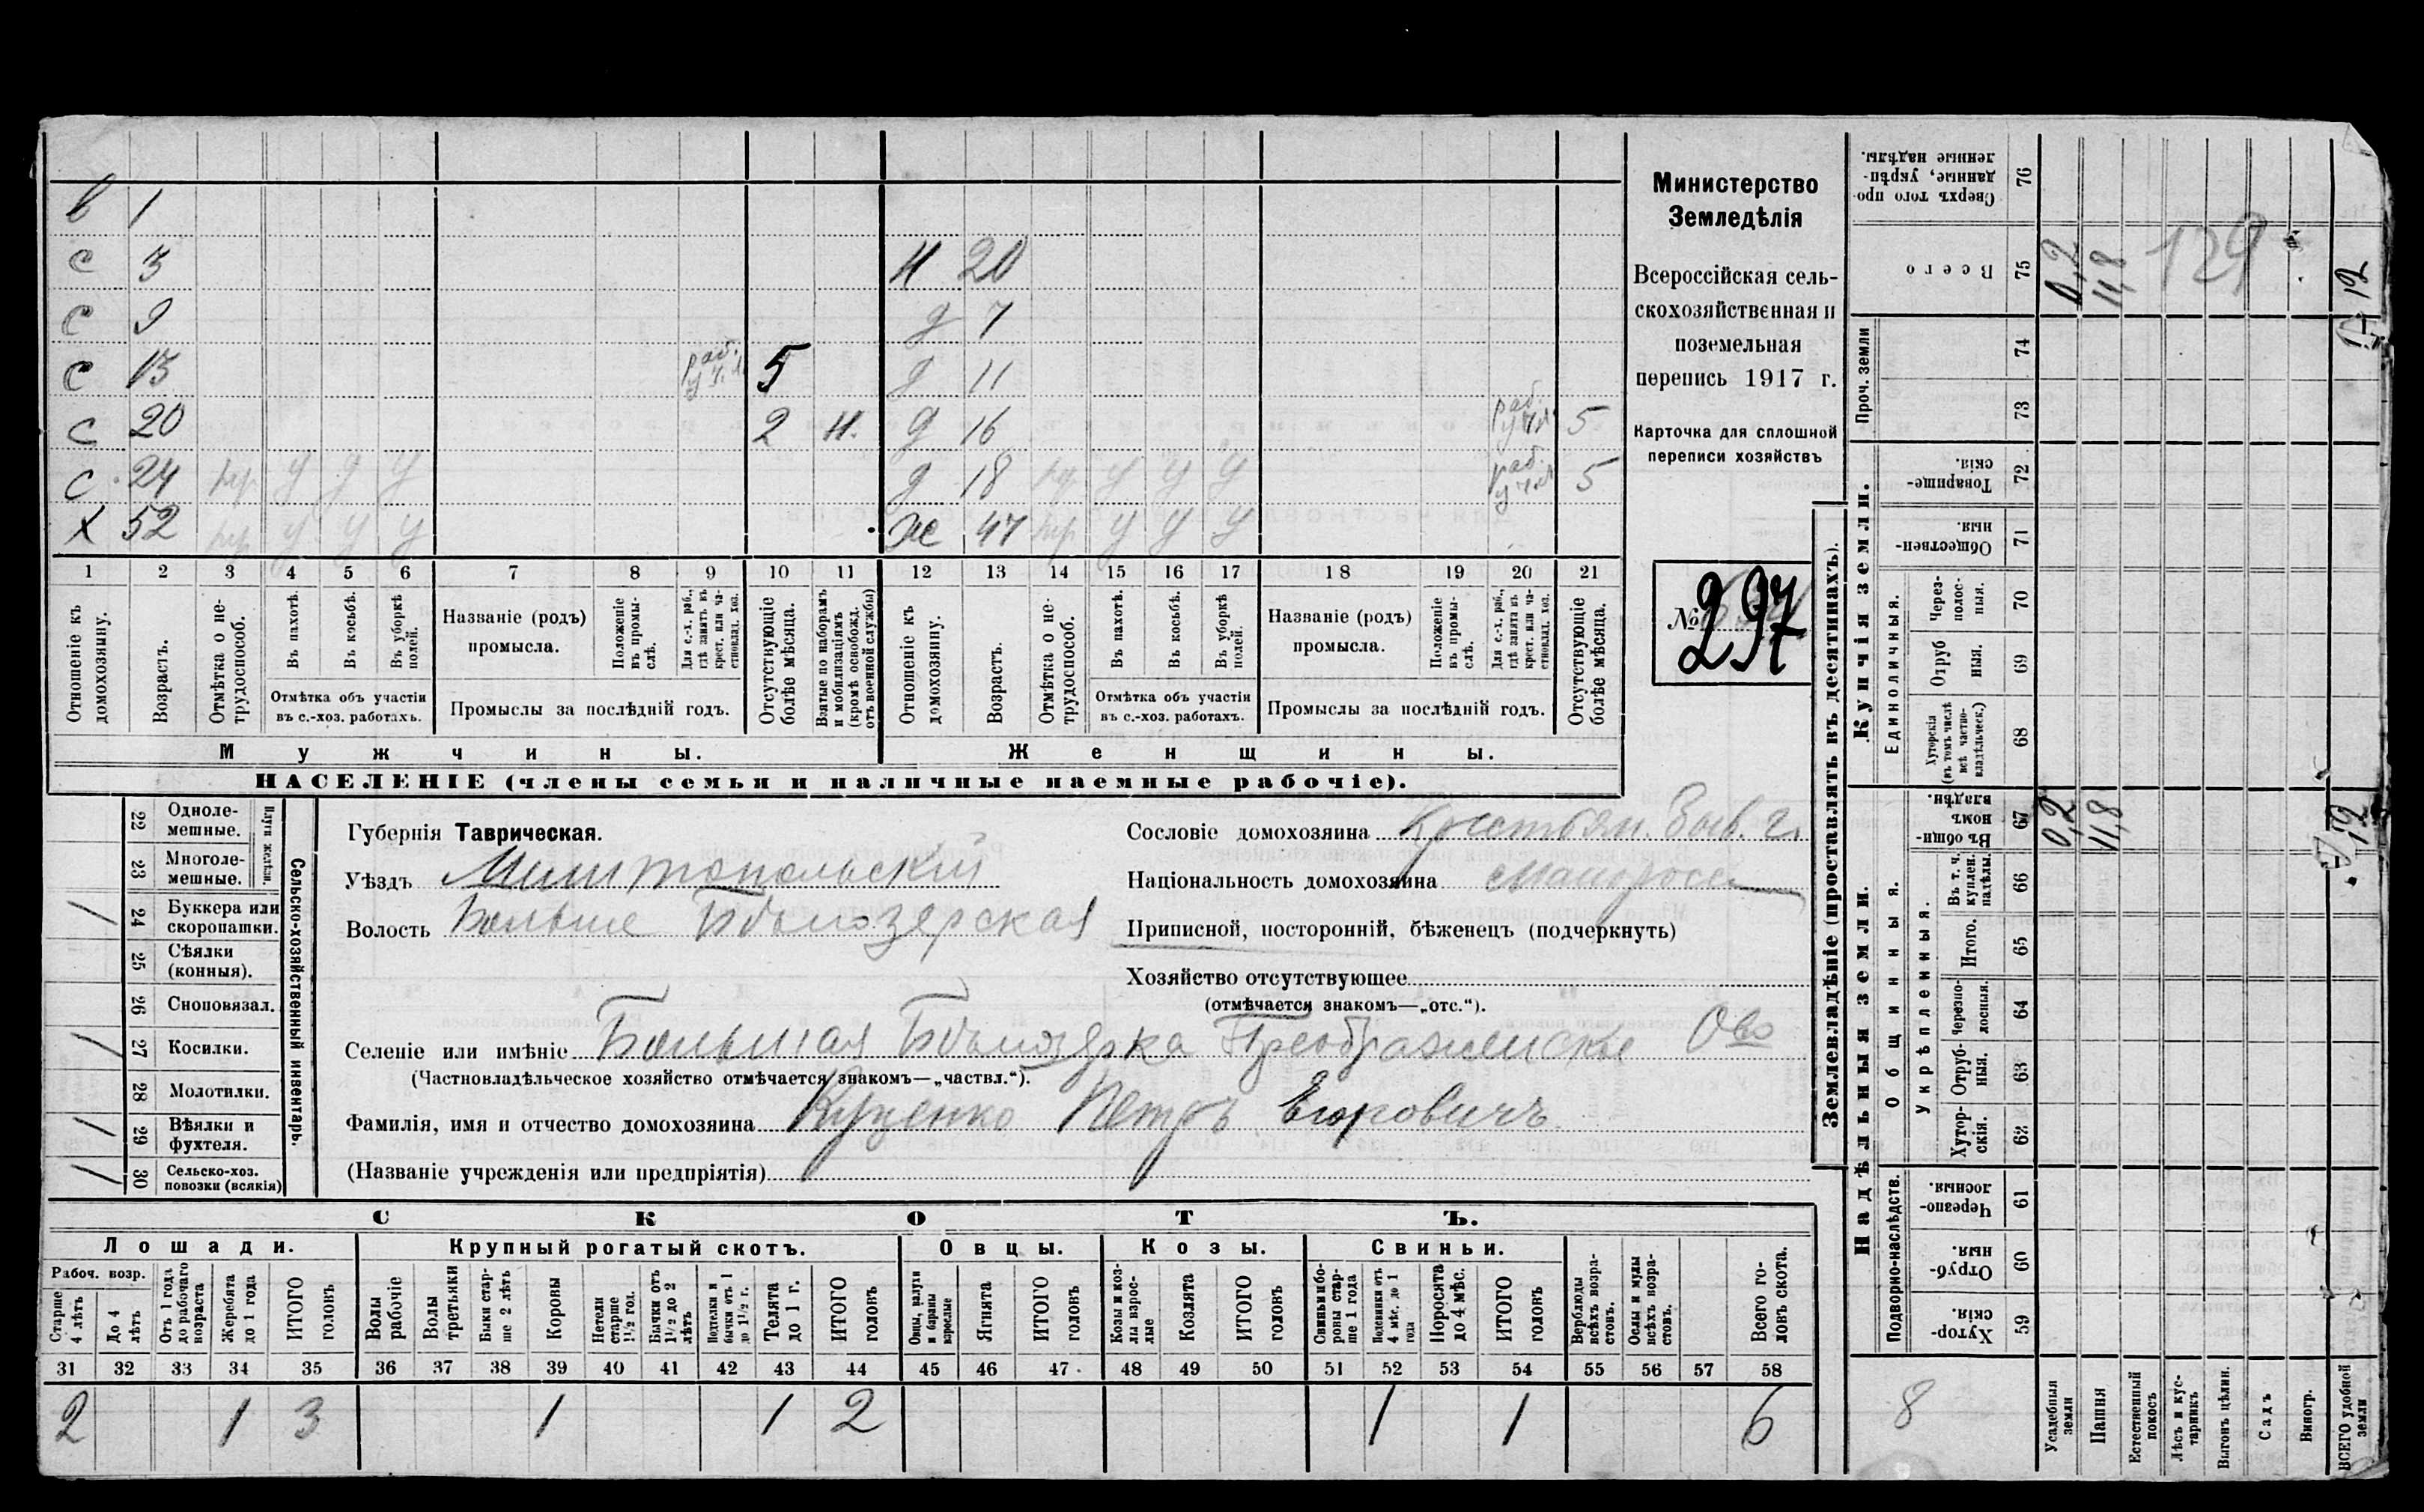 в 1
с 3 н 20
с 9 д 7
с 13 раб. 5 д 11
с 20 2 н. д 16 раб. у чл 5
с 24 нр у у у д 18 нр у у у раб. у чл 5
х 52 нр у у у ж 47 нр у у у
1 2 3 4 5 6 7 8 9 10 11 12 13 14 15 16 17 18 19 20 21
Отношеніе къ домохозяину.
Возрастъ.
Отмѣтка о нетрудоспособ.
Въ пахотѣ.
Въ косьбѣ.
Въ уборкѣ полей.
Отмѣтка объ участіи въ с.-хоз. работахъ.
Названіе (родъ) промысла.
Положеніе въ промыслѣ.
Для с.-х. раб., гдѣ занятъ въ крест. или частновлад. хоз.
Промыслы за послѣдній годъ.
Отсутствующіе болѣе мѣсяца.
Взятые по наборамъ и мобилизаціямъ (кромѣ освобожд. отъ военной службы)
Отношеніе къ домохозяину.
Возрастъ.
Отмѣтка о нетрудоспособ.
Въ пахотѣ.
Въ косьбѣ.
Въ уборкѣ полей.
Отмѣтка объ участіи въ с.-хоз. работахъ.
Названіе (родъ) промысла.
Положеніе въ промыслѣ.
Для с.-х. раб., гдѣ занята въ крест. или частновлад. хоз.
Промыслы за послѣдній годъ.
Отсутствующіе болѣе мѣсяца.
Мужчины. Женщины.
НАСЕЛЕНІЕ (члены семьи и наличные наемные рабочіе).
Министерство
Земледѣлія
Всероссійская сель-
скохозяйственная и
поземельная
перепись 1917 г.
Карточка для сплошной
переписи хозяйствъ
№ 297
Сельско-хозяйственный инвентарь.
Плуги желѣзн.
22 Одноле-мешные.
23 Многоле-мешные.
/ 24 Буккера или скоропашки.
25 Сѣялки (конныя).
26 Сноповязал.
/ 27 Косилки.
28 Молотилки.
/ 29 Вѣялки и фухтеля.
/ 30 Сельско-хоз. повозки (всякія)
Губернія Таврическая.
Уѣздъ Мелитопольскій
Волость Больше Бѣлозерская
Сословіе домохозяина Крестьян. быв. г.
Національность домохозяина Малоросс
Приписной, посторонній, бѣженецъ (подчеркнуть)
Хозяйство отсутствующее
(отмѣчается знакомъ—„отс.“).
Селеніе или имѣніе Большая Бѣлозерка Преображенское Ово
(Частновладѣльческое хозяйство отмѣчается знакомъ—„частвл.“).
Фамилія, имя и отчество домохозяина Куценко Петръ Егоровичъ
(Названіе учрежденія или предпріятія)
СКОТЪ.
Лошади. Крупный рогатый скотъ. Овцы. Козы. Свиньи.
Рабоч. возр.
Старше 4 лѣтъ
До 4 лѣтъ
Отъ 1 года до рабочаго возраста
Жеребята до 1 года
ИТОГО головъ
Волы рабочіе
Волы третьяки
Быки старше 2 лѣтъ
Коровы
Нетели старше 1½ год.
Бычки отъ 1½ до 2 лѣтъ
Подтелки и бычки отъ 1 до 1½ г.
Телята до 1 г.
ИТОГО головъ
Овцы, валухи и бараны взрослые
Ягнята
ИТОГО головъ
Козы и козлы взрослые
Козлята
ИТОГО головъ
Свиньи и боровы старше 1 года
Подсвинки отъ 4 мѣс. до 1 года
Поросята до 4 мѣс.
ИТОГО головъ
Верблюды всѣхъ возрастовъ.
Ослы и мулы всѣхъ возрастовъ.
Всего головъ скота.
31 32 33 34 35 36 37 38 39 40 41 42 43 44 45 46 47 48 49 50 51 52 53 54 55 56 57 58
2 1 3 1 1 2 1 1 6
Землевладѣніе (проставлять въ десятинахъ).
Надѣльныя земли. Купчія земли. Проч. земли
Подворно-наслѣдств. Общинныя. Укрѣпленныя. Единоличныя.
Сверхъ того проданные, укрѣпленные надѣлы. 76
Всего 75 0,2 11,8 129 12
74
73
Товарищескія. 72
Общественныя. 71
Черезполосныя. 70
Отрубныя. 69
Хуторскія (въ томъ числѣ всѣ частновладѣльческ.) 68
Въ общинномъ владѣн. 67 0,2 11,8 12
Въ т. ч. куплен. надѣлы. 66
Итого. 65
Черезполосныя. 64
Отрубныя. 63
Хуторскія. 62
Черезполосныя. 61
Отрубныя. 60
Хуторскія. 59
8
Усадебныя земли
Пашня
Естественный покосъ
Лѣсъ и кустарникъ
Выгонъ цѣлин.
Садъ
Виногр.
ВСЕГО удобной земли